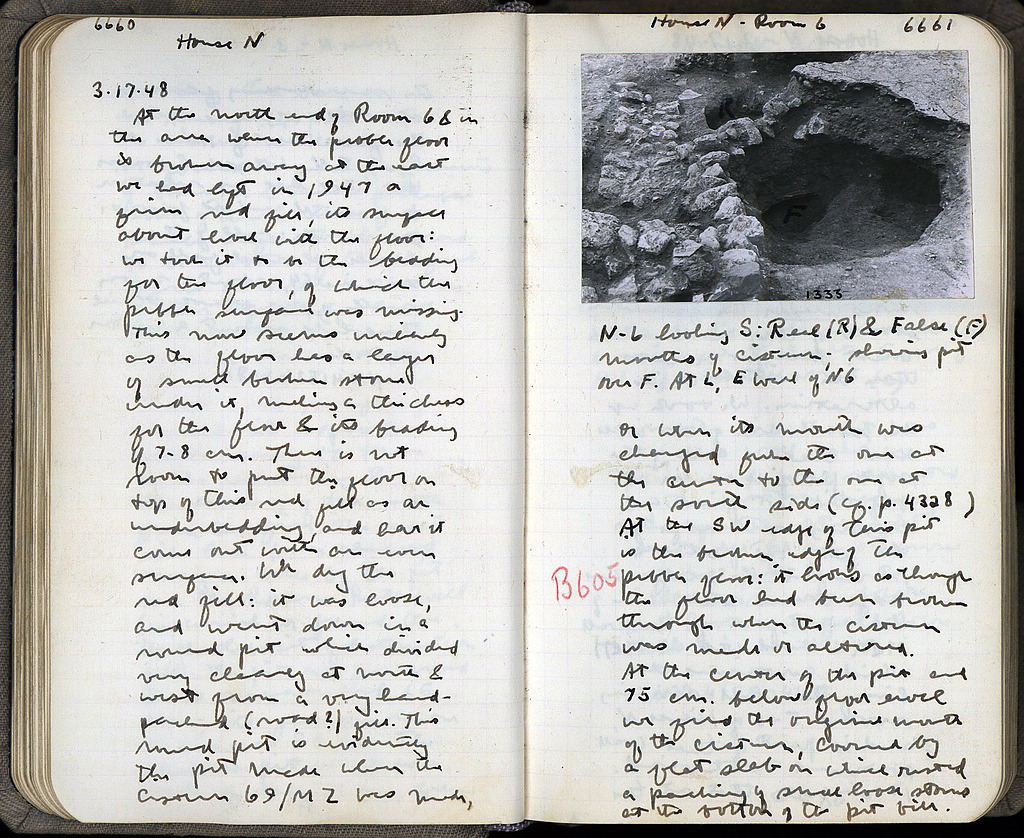 6660
House N
3·17·48
At the north end of Room 6 & in
the area where the pebble floor
is broken away at the east
we had left in 1947 a
firm red fill, its surface
about level with the floor:
we took it to be the bedding
for the floor, of which the
pebble surface was missing.
This now seems unlikely
as the floor has a layer
of small broken stone
under it, making a thickness
for the floor & its bedding
of 7-8 cm. There is not
room to put the floor on
top of this red fill as an
underbedding, and have it
come out with an even
surface. We dig the
red fill: it was loose,
and went down in a
round pit which divided
very clearly at north &
west from a very hard-
packed (road?) fill. This
round pit is evidently
the pit made when the
cistern 69/ΜΖ was made,
House N - Room 6
6661
R
F
1333
N-6 looking S: Real (R) & False (F)
mouths of cistern; showing pit
over F. At L, E wall of N6
or when its mouth was
changed from the one at
the center to the one at
the south side (cf. p. 4328)
At the SW edge of this pit
is the broken edge of the
pebble floor: it looks as though
the floor had been broken
through when the cistern
was made or altered.
At the center of the pit and
75 cm. below floor level
we find the original mouth
of the cistern, covered by
a flat slab on which rested
a packing of small loose stones
at the bottom of the pit fill.
B605